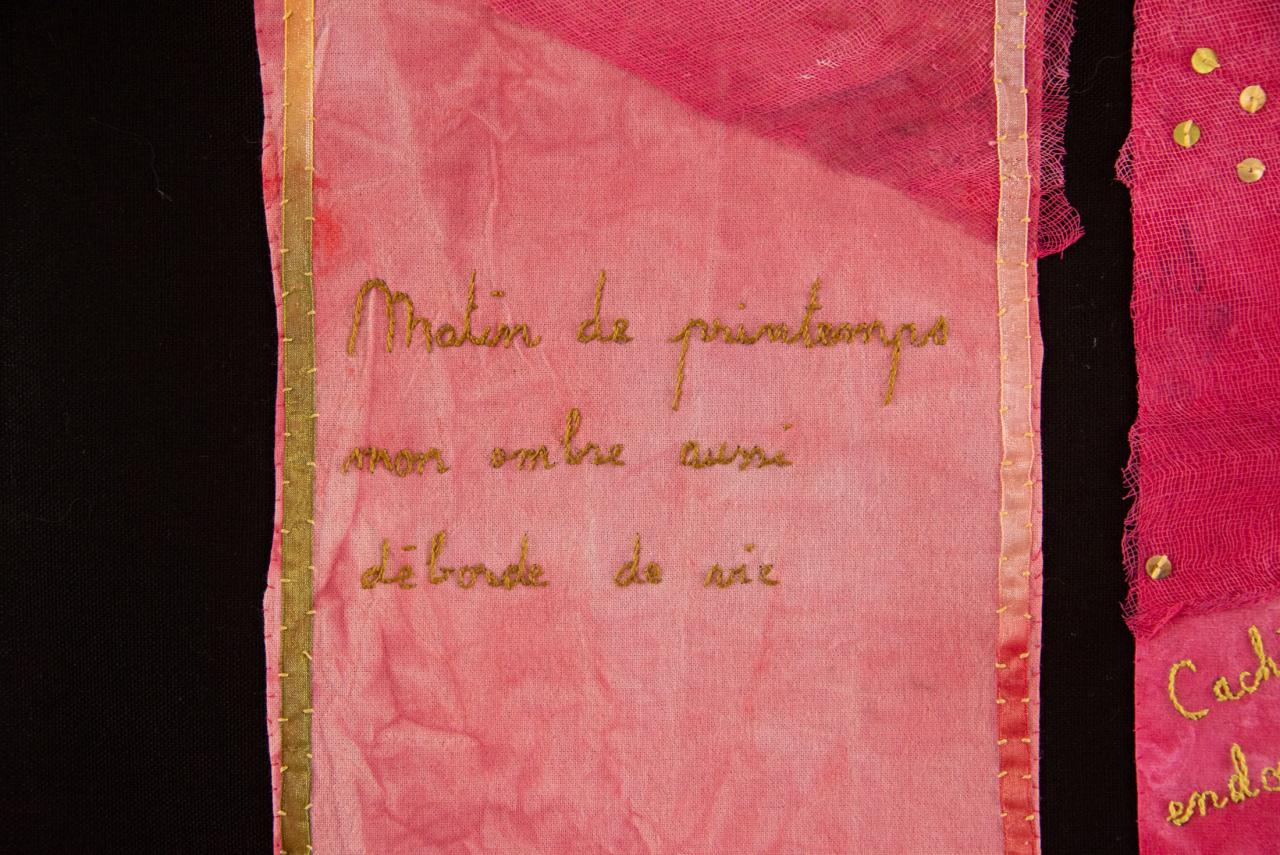 Matin de printemps
mon ombre aussi
déborde de vie